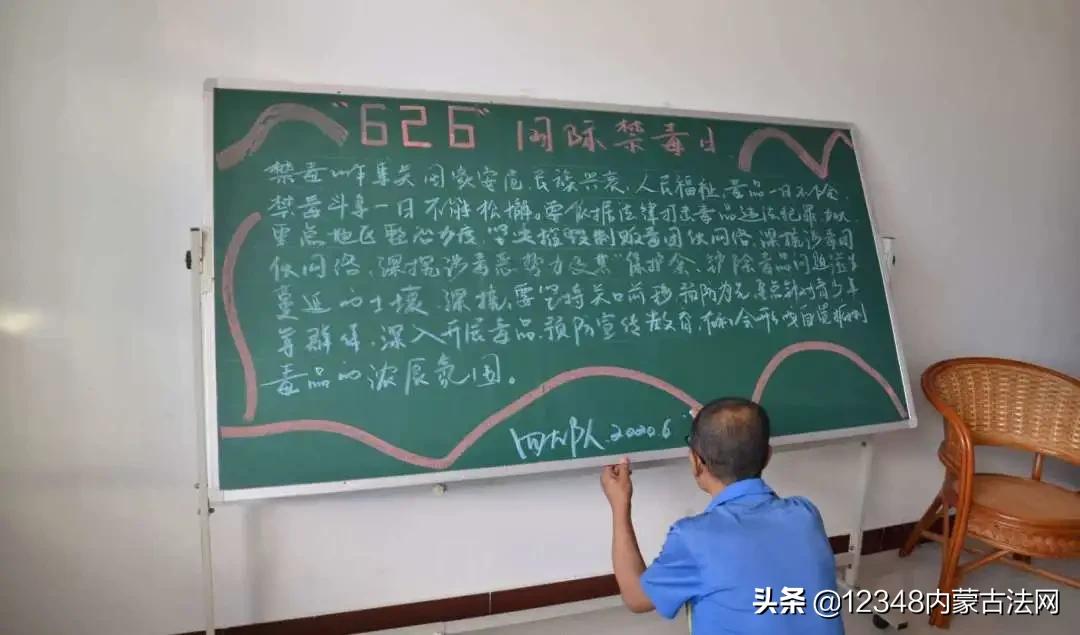 "626"国际禁毒日
禁毒事关国家安危、民族兴衰、人民福祉,毒品一日不除,
禁毒斗争一日不能松懈。要依据法律打击毒品违法犯罪,
重点地区整治力度,坚决摧毁制贩毒团伙网络,深挖涉毒团
伙网络、深挖涉毒恶势力及其"保护伞、铲除毒品问题滋生
蔓延的土壤 深挖,要坚持关口前移 预防为先,重点针对青少年
等群体,深入开展毒品预防宣传教育,
毒品的浓厚氛围。
四大队 2020.6
头条 @12348内蒙古法网